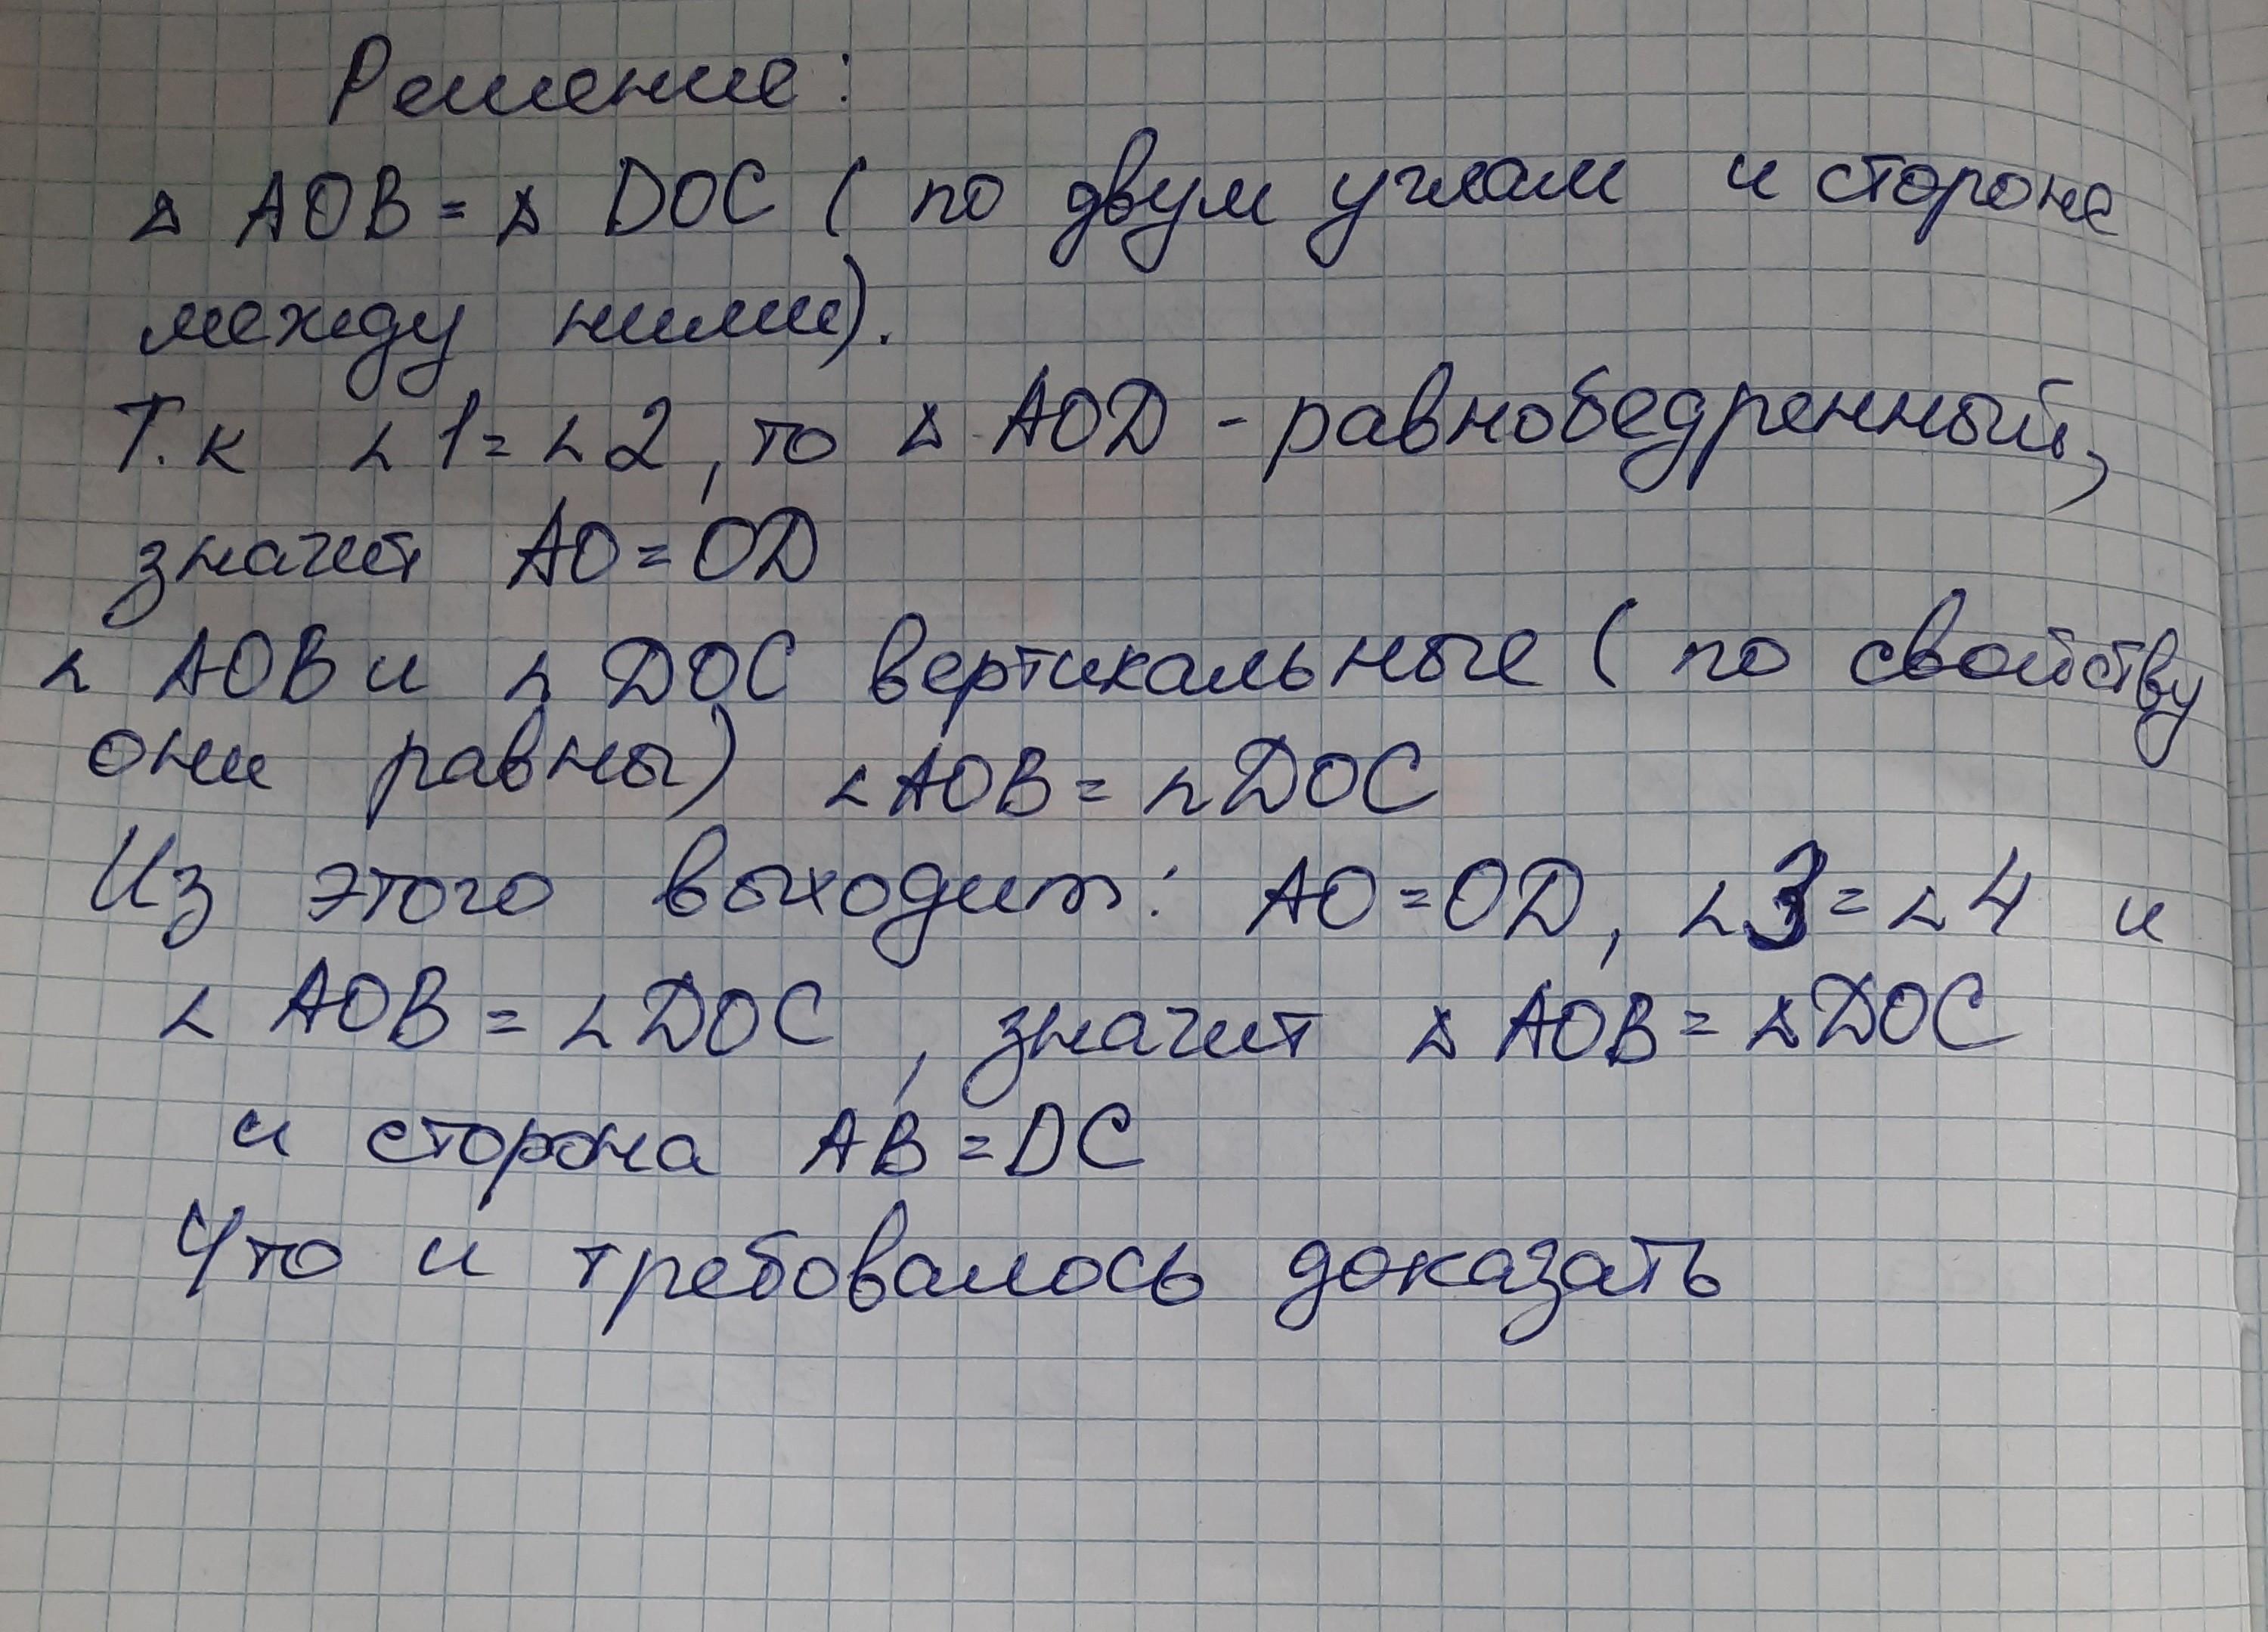 Решение:
△ AOB = △ DOC ( по двум углам и стороне
между ними).
Т.к ∠1=∠2, то △ AOD - равнобедренный,
значит AO=OD
∠ AOB и ∠ DOC вертикальные ( по свойству
они равны) ∠AOB = ∠DOC
Из этого выходит: AO=OD, ∠3=∠4 и
∠ AOB = ∠DOC , значит △ AOB = △DOC
и сторона AB=DC
Что и требовалось доказать